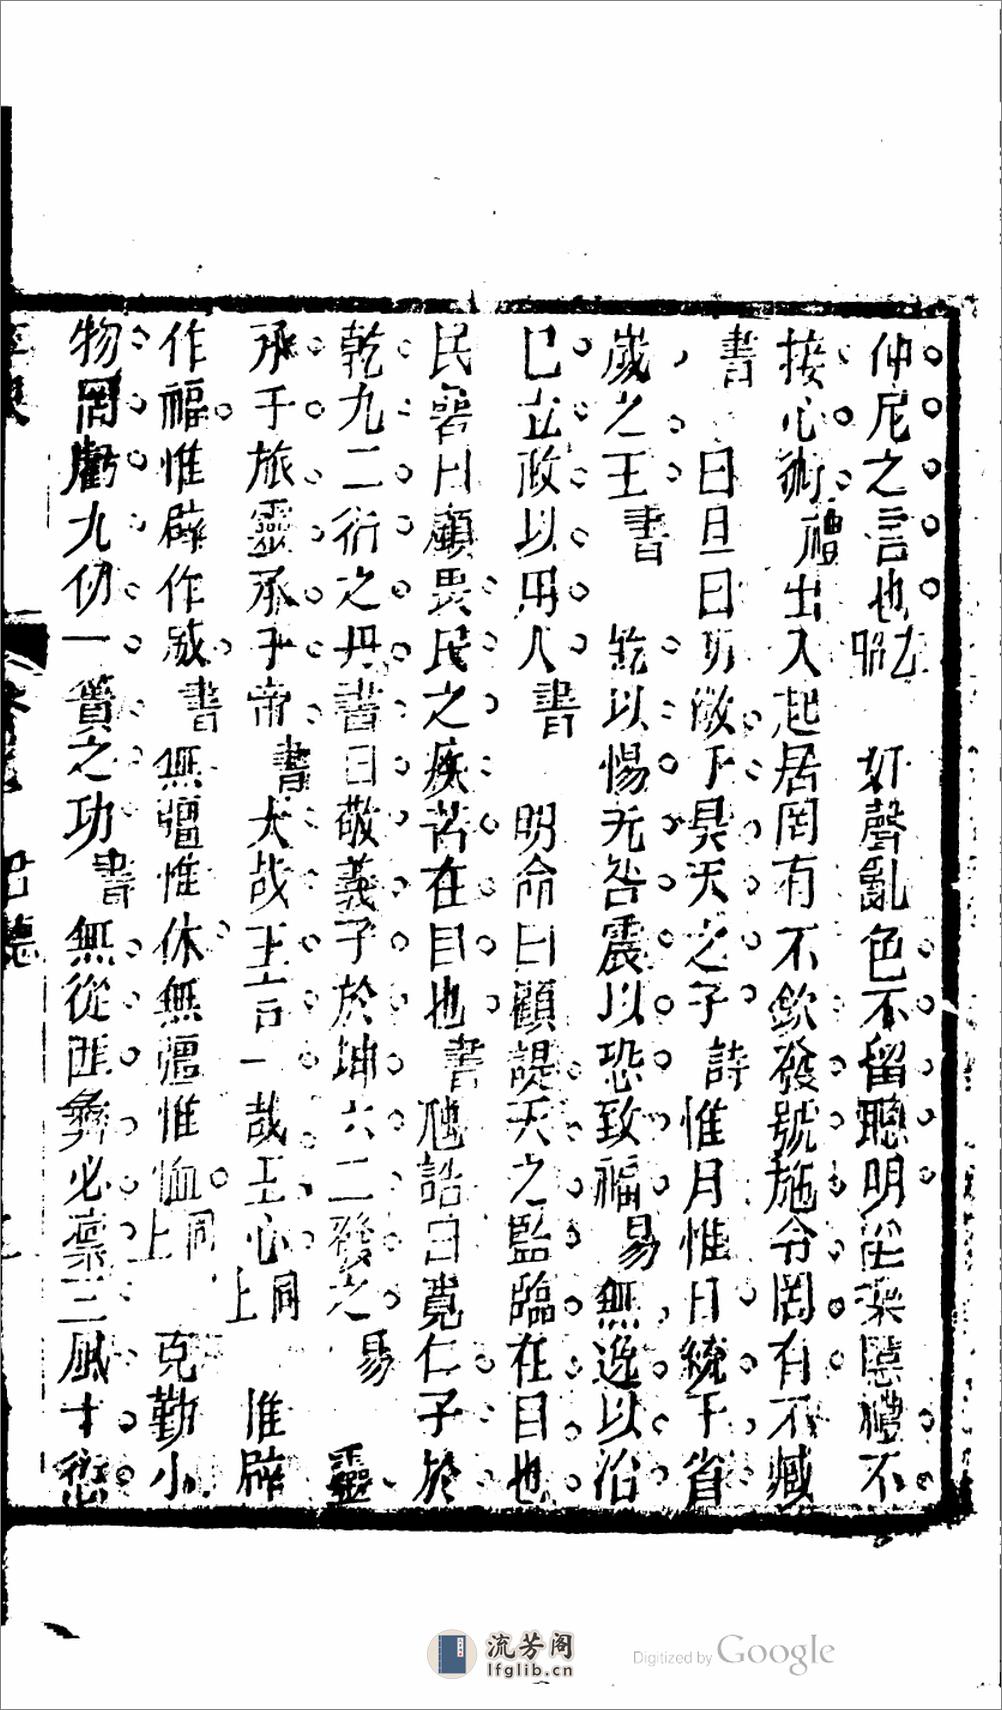 仲尼之言也 左昭 奸聲亂色不留聰明淫樂慝禮不
接心術 禮 出入起居罔有不欽發號施令罔有不臧
書 日旦日明敬于昊天之子 詩 惟月惟日統于省
歲之王 書 兢以惕无咎震以恐致福 易 無逸以治
已立政以用人 書 明命曰顧諟天之監臨在目也
民碞曰顧畏民之疾苦在目也 書 虺誥曰寬仁子於
乾九二衍之丹書曰敬義子於坤六二發之 易 靈
承于旅靈承于帝 書 大哉王言一哉王心 同上 惟辟
作福惟辟作威 書 無疆惟休無疆惟恤 同上 克勤小
物罔虧九仞一簣之功 書 無從匪彝必凛三風十愆
流芳阁
lfglib.cn
Digitized by Google